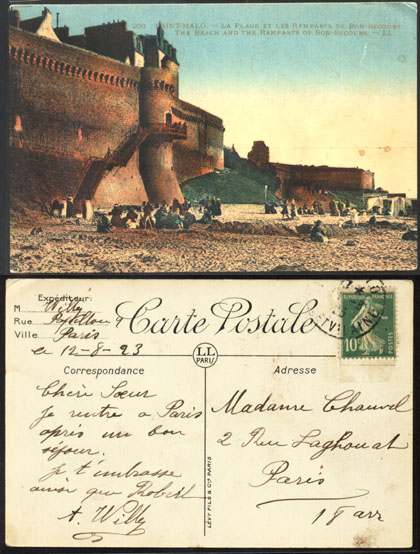 203 SAINT-MALO. - LA PLAGE ET LES REMPARTS DE BON-SECOURS
THE BEACH AND THE RAMPARTS OF BON-SECOURS. - LL.
Expéditeur:
M Willy
Rue
Ville Paris
le 12-8-23
Carte Postale
LL
PARIS
REPUBLIQUE FRANÇAISE
POSTES
10c
Correspondance
Chère Sœur
Je rentre a Paris
après un bon
séjour.
je t'embrasse
ainsi que Robert
A. Willy
LÉVY FILS & Cie PARIS
Adresse
Madame Chauvel
2 Rue Laghouat
Paris
18 arr